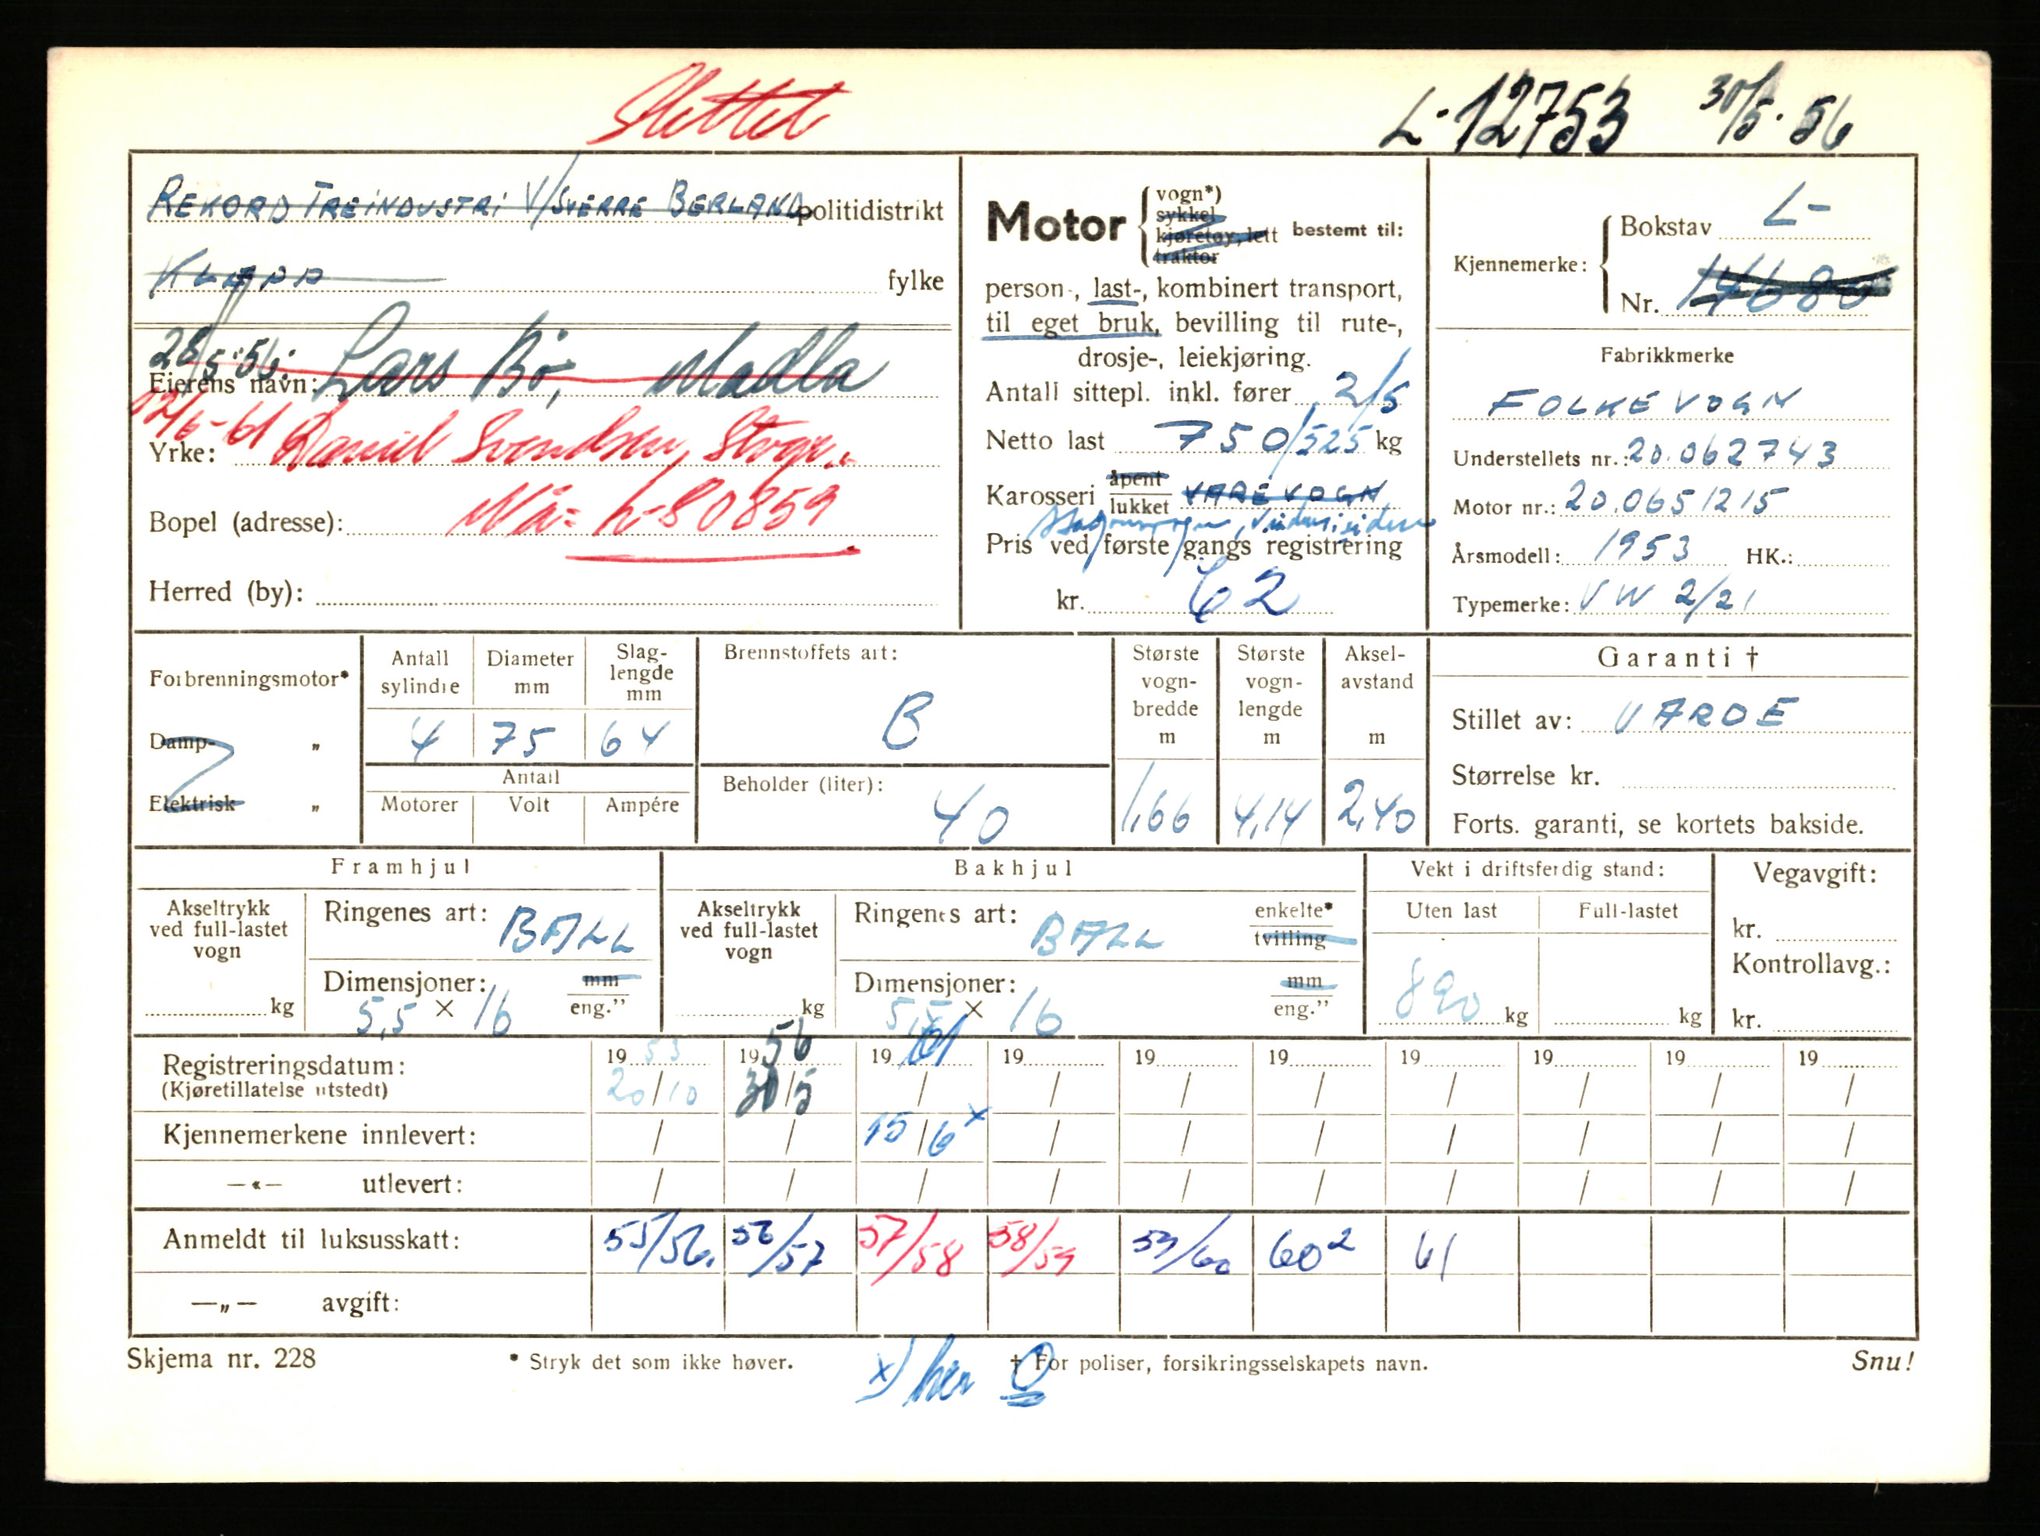 Slettet
L-12753 30/5-56
REKORD TREINDUSTRI V/SVERRE BERLAND politidistrikt
KLEPP fylke
28/5-56:
Eierens navn: Lars Bø, Madla
12/6-61
Yrke: Daniel Svendsen,
Bopel (adresse): Nå = L-80859
Herred (by):
Motor
vogn*)
sykkel
kjøretøy, lett
traktor
bestemt til:
person-, last-, kombinert transport,
til eget bruk, bevilling til rute-,
drosje-, leiekjøring.
Antall sittepl. inkl. fører 2/5
Netto last 750/525 kg
Karosseri åpent
lukket VAREVOGN
Stasjonsvogn, vinduer i siden
Pris ved første gangs registrering
kr. 62
Kjennemerke:
Bokstav L-
Nr. 14680
Fabrikkmerke
FOLKEVOGN
Understellets nr.: 20.062743
Motor nr.: 20.0651215
Årsmodell: 1953 HK.:
Typemerke: VW 2/21
Forbrenningsmotor*
Damp- „
Elektrisk „
Antall sylindre
Diameter mm
Slag-
lengde
mm
4 75 64
Antall
Motorer Volt Ampére
Brennstoffets art:
B
Beholder (liter):
40
Største
vogn-
bredde
m
1,66
Største
vogn-
lengde
m
4,14
Aksel-
avstand
m
2,40
Garanti †
Stillet av: VARDE
Størrelse kr.
Forts. garanti, se kortets bakside.
Framhjul
Akseltrykk
ved full-lastet
vogn
kg
Ringenes art: BALL
Dimensjoner: mm
5,5 × 16 eng.”
Bakhjul
Akseltrykk
ved full-lastet
vogn
kg
Ringenes art: BALL enkelte*
tvilling
Dimensjoner: mm
5,5 × 16 eng.”
Vekt i driftsferdig stand:
Uten last Full-lastet
890 kg kg
Vegavgift:
kr.
Kontrollavg.:
kr.
Registreringsdatum: 19 53 19 56 19 61 19 19 19 19 19 19 19
(Kjøretillatelse utstedt) 20/10 30/5 / / / / / / / /
Kjennemerkene innlevert: / / 15/6 x / / / / / / /
—«— utlevert: / / / / / / / / / /
Anmeldt til luksusskatt: 55/56. 56/57 57/58 58/59 59/60 60² 61
—„— avgift:
Skjema nr. 228 * Stryk det som ikke høver. † For poliser, forsikringsselskapets navn. Snu!
x) her O